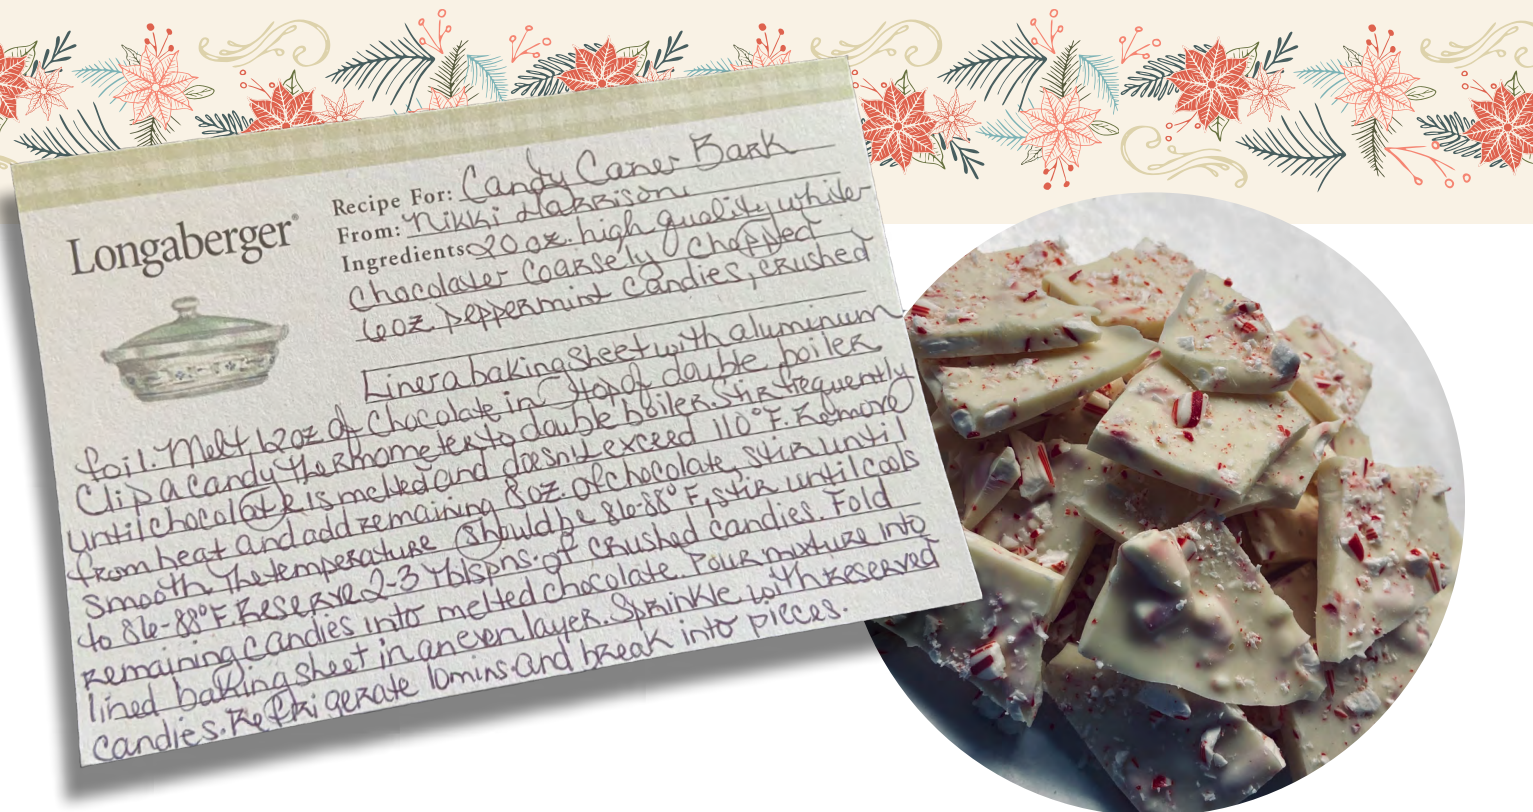 Longaberger®
Recipe For: Candy Cane Bark
From: Nikki Harrison
Ingredients 20 oz. high quality white
Chocolate coarsely chopped
6 oz peppermint candies, crushed
Line a baking sheet with aluminum
foil. Melt 12 oz of chocolate in top of double boiler
Clip a candy thermometer to double boiler. Stir frequently
until chocolate is melted and doesn't exceed 110°F. Remove
from heat and add remaining 8 oz. of chocolate, stir until
smooth. The temperature should be 86-88°F, stir until cools
to 86-88°F. Reserve 2-3 Tblspns. of crushed candies. Fold
remaining candies into melted chocolate. Pour mixture into
lined baking sheet in an even layer. Sprinkle with reserved
candies. Refrigerate 10 mins. and break into pieces.